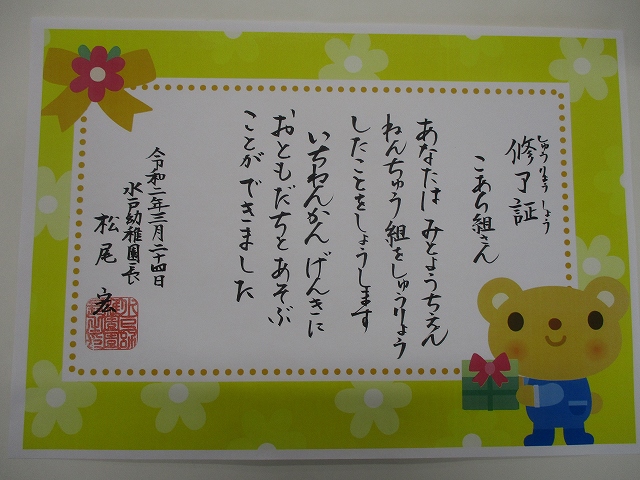 しゅうりょうしょう
修了証
こあら組さん
あなたは みとようちえん
ねんちゅう組をしゅうりょう
したことをしょうします
いちねんかん げんきに
おともだちとあそぶ
ことが できました
令和二年三月二十四日
水戸幼稚園長
松尾 宏